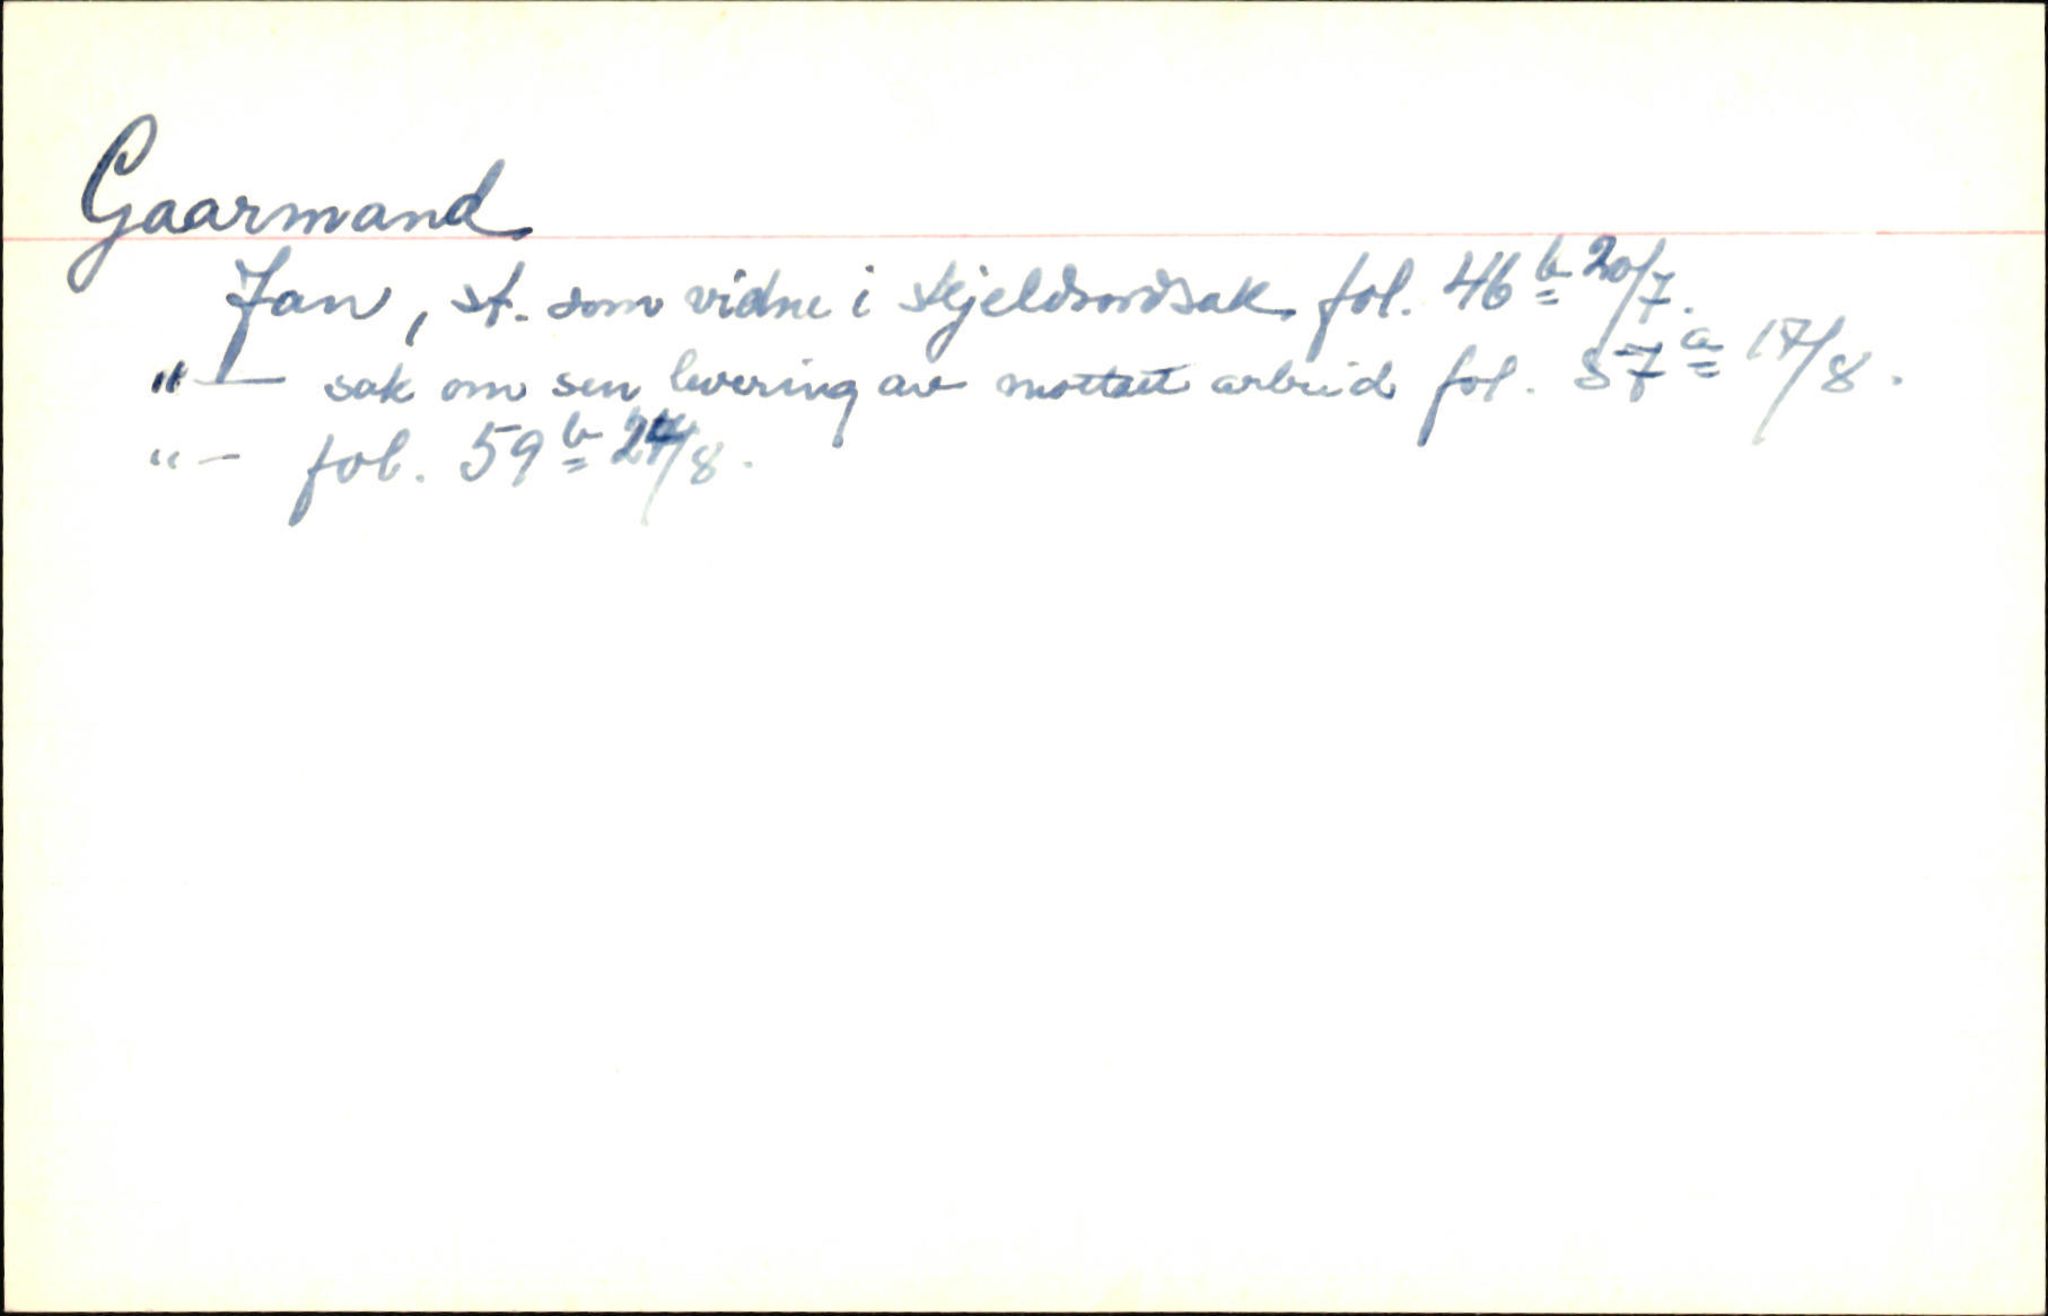 Gaarmand
Jan, st. som vidne i skjeldsordsak fol. 46 b 20/7.
"— sak om sen levering av mottatt arbeid fol. 57 a 17/8.
"— fol. 59 b 24/8.